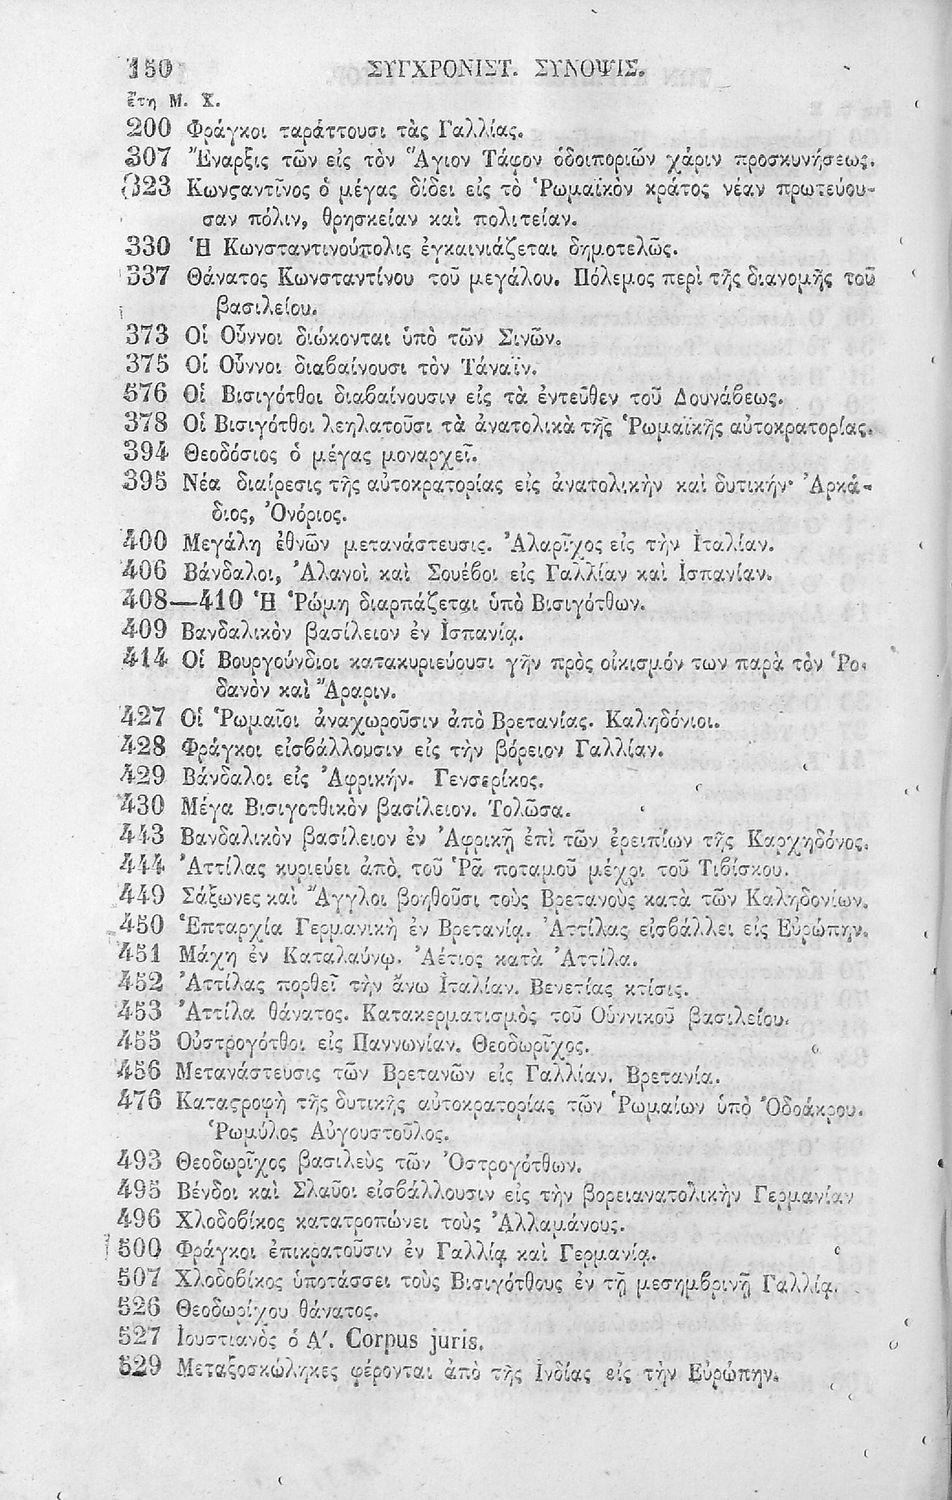 150 ΣΥΓΧΡΟΝΙΣΤ. ΣΥΝΟΨΙΣ.
ἔτη Μ. Χ.
200 Φράγκοι ταράττουσι τὰς Γαλλίας.
307 Ἔναρξις τῶν εἰς τὸν Ἅγιον Τάφον ὁδοιποριῶν χάριν προσκυνήσεως.
323 Κωνϛαντῖνος ὁ μέγας δίδει εἰς τὸ Ῥωμαϊκὸν κράτος νέαν πρωτεύου-
σαν πόλιν, θρησκείαν καὶ πολιτείαν.
330 Ἡ Κωνσταντινούπολις ἐγκαινιάζεται δημοτελῶς.
337 Θάνατος Κωνσταντίνου τοῦ μεγάλου. Πόλεμος περὶ τῆς διανομῆς τοῦ
βασιλείου.
373 Οἱ Οὗννοι διώκονται ὑπὸ τῶν Σινῶν.
375 Οἱ Οὗννοι διαβαίνουσι τὸν Τάναϊν.
576 Οἱ Βισιγότθοι διαβαίνουσιν εἰς τὰ ἐντεῦθεν τοῦ Δουνάβεως.
378 Οἱ Βισιγότθοι λεηλατοῦσι τὰ ἀνατολικὰ τῆς Ῥωμαϊκῆς αὐτοκρατορίας.
394 Θεοδόσιος ὁ μέγας μοναρχεῖ.
395 Νέα διαίρεσις τῆς αὐτοκρατορίας εἰς ἀνατολικὴν καὶ δυτικήν· Ἀρκά-
διος, Ὀνόριος.
400 Μεγάλη ἐθνῶν μετανάστευσις. Ἀλαρῖχος εἰς τὴν Ἰταλίαν.
406 Βάνδαλοι, Ἀλανοὶ καὶ Σουέβοι εἰς Γαλλίαν καὶ Ἱσπανίαν.
408—410 Ἡ Ῥώμη διαρπάζεται ὑπὸ Βισιγότθων.
409 Βανδαλικὸν βασίλειον ἐν Ἱσπανίᾳ.
414 Οἱ Βουργούνδιοι κατακυριεύουσι γῆν πρὸς οἰκισμόν των παρὰ τὸν Ῥο-
δανὸν καὶ Ἄραριν.
427 Οἱ Ῥωμαῖοι ἀναχωροῦσιν ἀπὸ Βρετανίας. Καληδόνιοι.
428 Φράγκοι εἰσβάλλουσιν εἰς τὴν βόρειον Γαλλίαν.
429 Βάνδαλοι εἰς Ἀφρικήν. Γενσερίκος.
430 Μέγα Βισιγοτθικὸν βασίλειον. Τολῶσα.
443 Βανδαλικὸν βασίλειον ἐν Ἀφρικῇ ἐπὶ τῶν ἐρειπίων τῆς Καρχηδόνος.
444 Ἀττίλας κυριεύει ἀπὸ τοῦ Ῥᾶ ποταμοῦ μέχρι τοῦ Τιβίσκου.
449 Σάξωνες καὶ Ἄγγλοι βοηθοῦσι τοὺς Βρετανοὺς κατὰ τῶν Καληδονίων.
450 Ἐπαρχία Γερμανικὴ ἐν Βρετανίᾳ. Ἀττίλας εἰσβάλλει εἰς Εὐρώπην.
451 Μάχη ἐν Καταλαύνῳ. Ἀέτιος κατὰ Ἀττίλα.
452 Ἀττίλας πορθεῖ τὴν ἄνω Ἰταλίαν. Βενετίας κτίσις.
453 Ἀττίλα θάνατος. Κατακερματισμὸς τοῦ Οὑννικοῦ βασιλείου.
455 Οὐστρογότθοι εἰς Παννωνίαν. Θεοδωρῖχος.
456 Μετανάστευσις τῶν Βρετανῶν εἰς Γαλλίαν. Βρετανία.
476 Καταϛροφὴ τῆς δυτικῆς αὐτοκρατορίας τῶν Ῥωμαίων ὑπὸ Ὀδοάκρου.
Ῥωμύλος Αὐγουστοῦλος.
493 Θεοδωρῖχος βασιλεὺς τῶν Ὀστρογότθων.
495 Βένδοι καὶ Σλαῦοι εἰσβάλλουσιν εἰς τὴν βορειανατολικὴν Γερμανίαν
496 Χλοδοβίκος κατατροπώνει τοὺς Ἀλλαμάνους.
500 Φράγκοι ἐπικρατοῦσιν ἐν Γαλλίᾳ καὶ Γερμανίᾳ.
507 Χλοδοβίκος ὑποτάσσει τοὺς Βισιγότθους ἐν τῇ μεσημβρινῇ Γαλλίᾳ.
526 Θεοδωρίχου θάνατος.
527 Ἰουστιανὸς ὁ Α΄. Corpus juris.
529 Μεταξοσκώληκες φέρονται ἀπὸ τῆς Ἰνδίας εἰς τὴν Εὐρώπην.